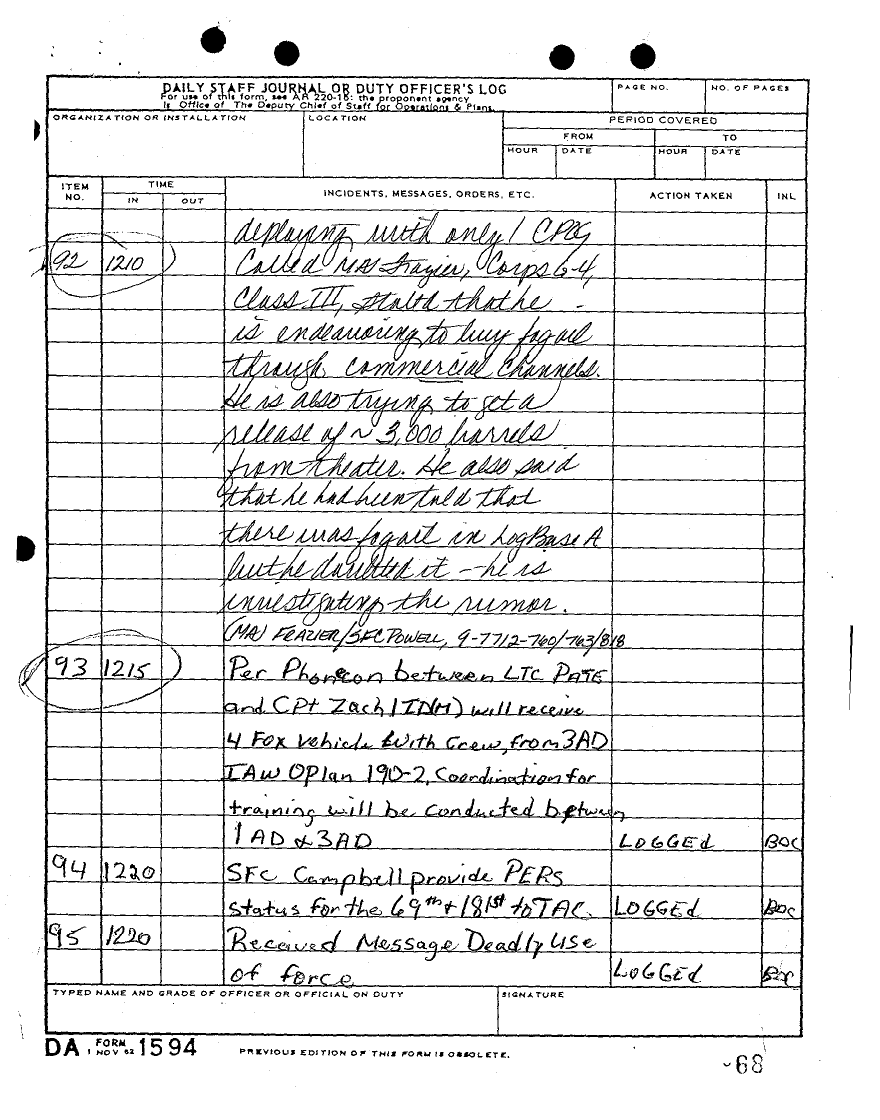 DAILY STAFF JOURNAL OR DUTY OFFICER'S LOG
For use of this form, see AR 220-15; the proponent agency
is Office of The Deputy Chief of Staff for Operations & Plans.
PAGE NO.
NO. OF PAGES
ORGANIZATION OR INSTALLATION
LOCATION
PERIOD COVERED
FROM
TO
HOUR DATE HOUR DATE
ITEM NO. TIME IN OUT INCIDENTS, MESSAGES, ORDERS, ETC. ACTION TAKEN INL
deploying with only 1 CPOG
92 1210 Called MAJ Frazier, Corps G-4,
Class III, stated that he -
is endeavoring to buy fog oil
through commercial channels.
He is also trying to get a
release of ~ 3,000 barrels
from theater. He also said
that he had been told that
there was fog oil in Log Base A
but he doubted it - he is
investigating the rumor.
(MAJ FRAZIER/SFC POWELL, 9-7712-760/763/818
93 1215 Per Phonecon between LTC PATE
and CPt Zach 1ID(M) will receive
4 Fox vehicle with Crew, from 3AD
IAW OPlan 190-2, Coordination for
training will be conducted between
1AD & 3AD LOGGEd BOC
94 1220 SFC Campbell provide PERS
status for the 69th + 181st to TAC. LOGGEd BOC
95 1220 Received Message Deadly USe
of force LOGGEd BOC
TYPED NAME AND GRADE OF OFFICER OR OFFICIAL ON DUTY
SIGNATURE
DA FORM 1 NOV 62 1594
PREVIOUS EDITION OF THIS FORM IS OBSOLETE.
-68